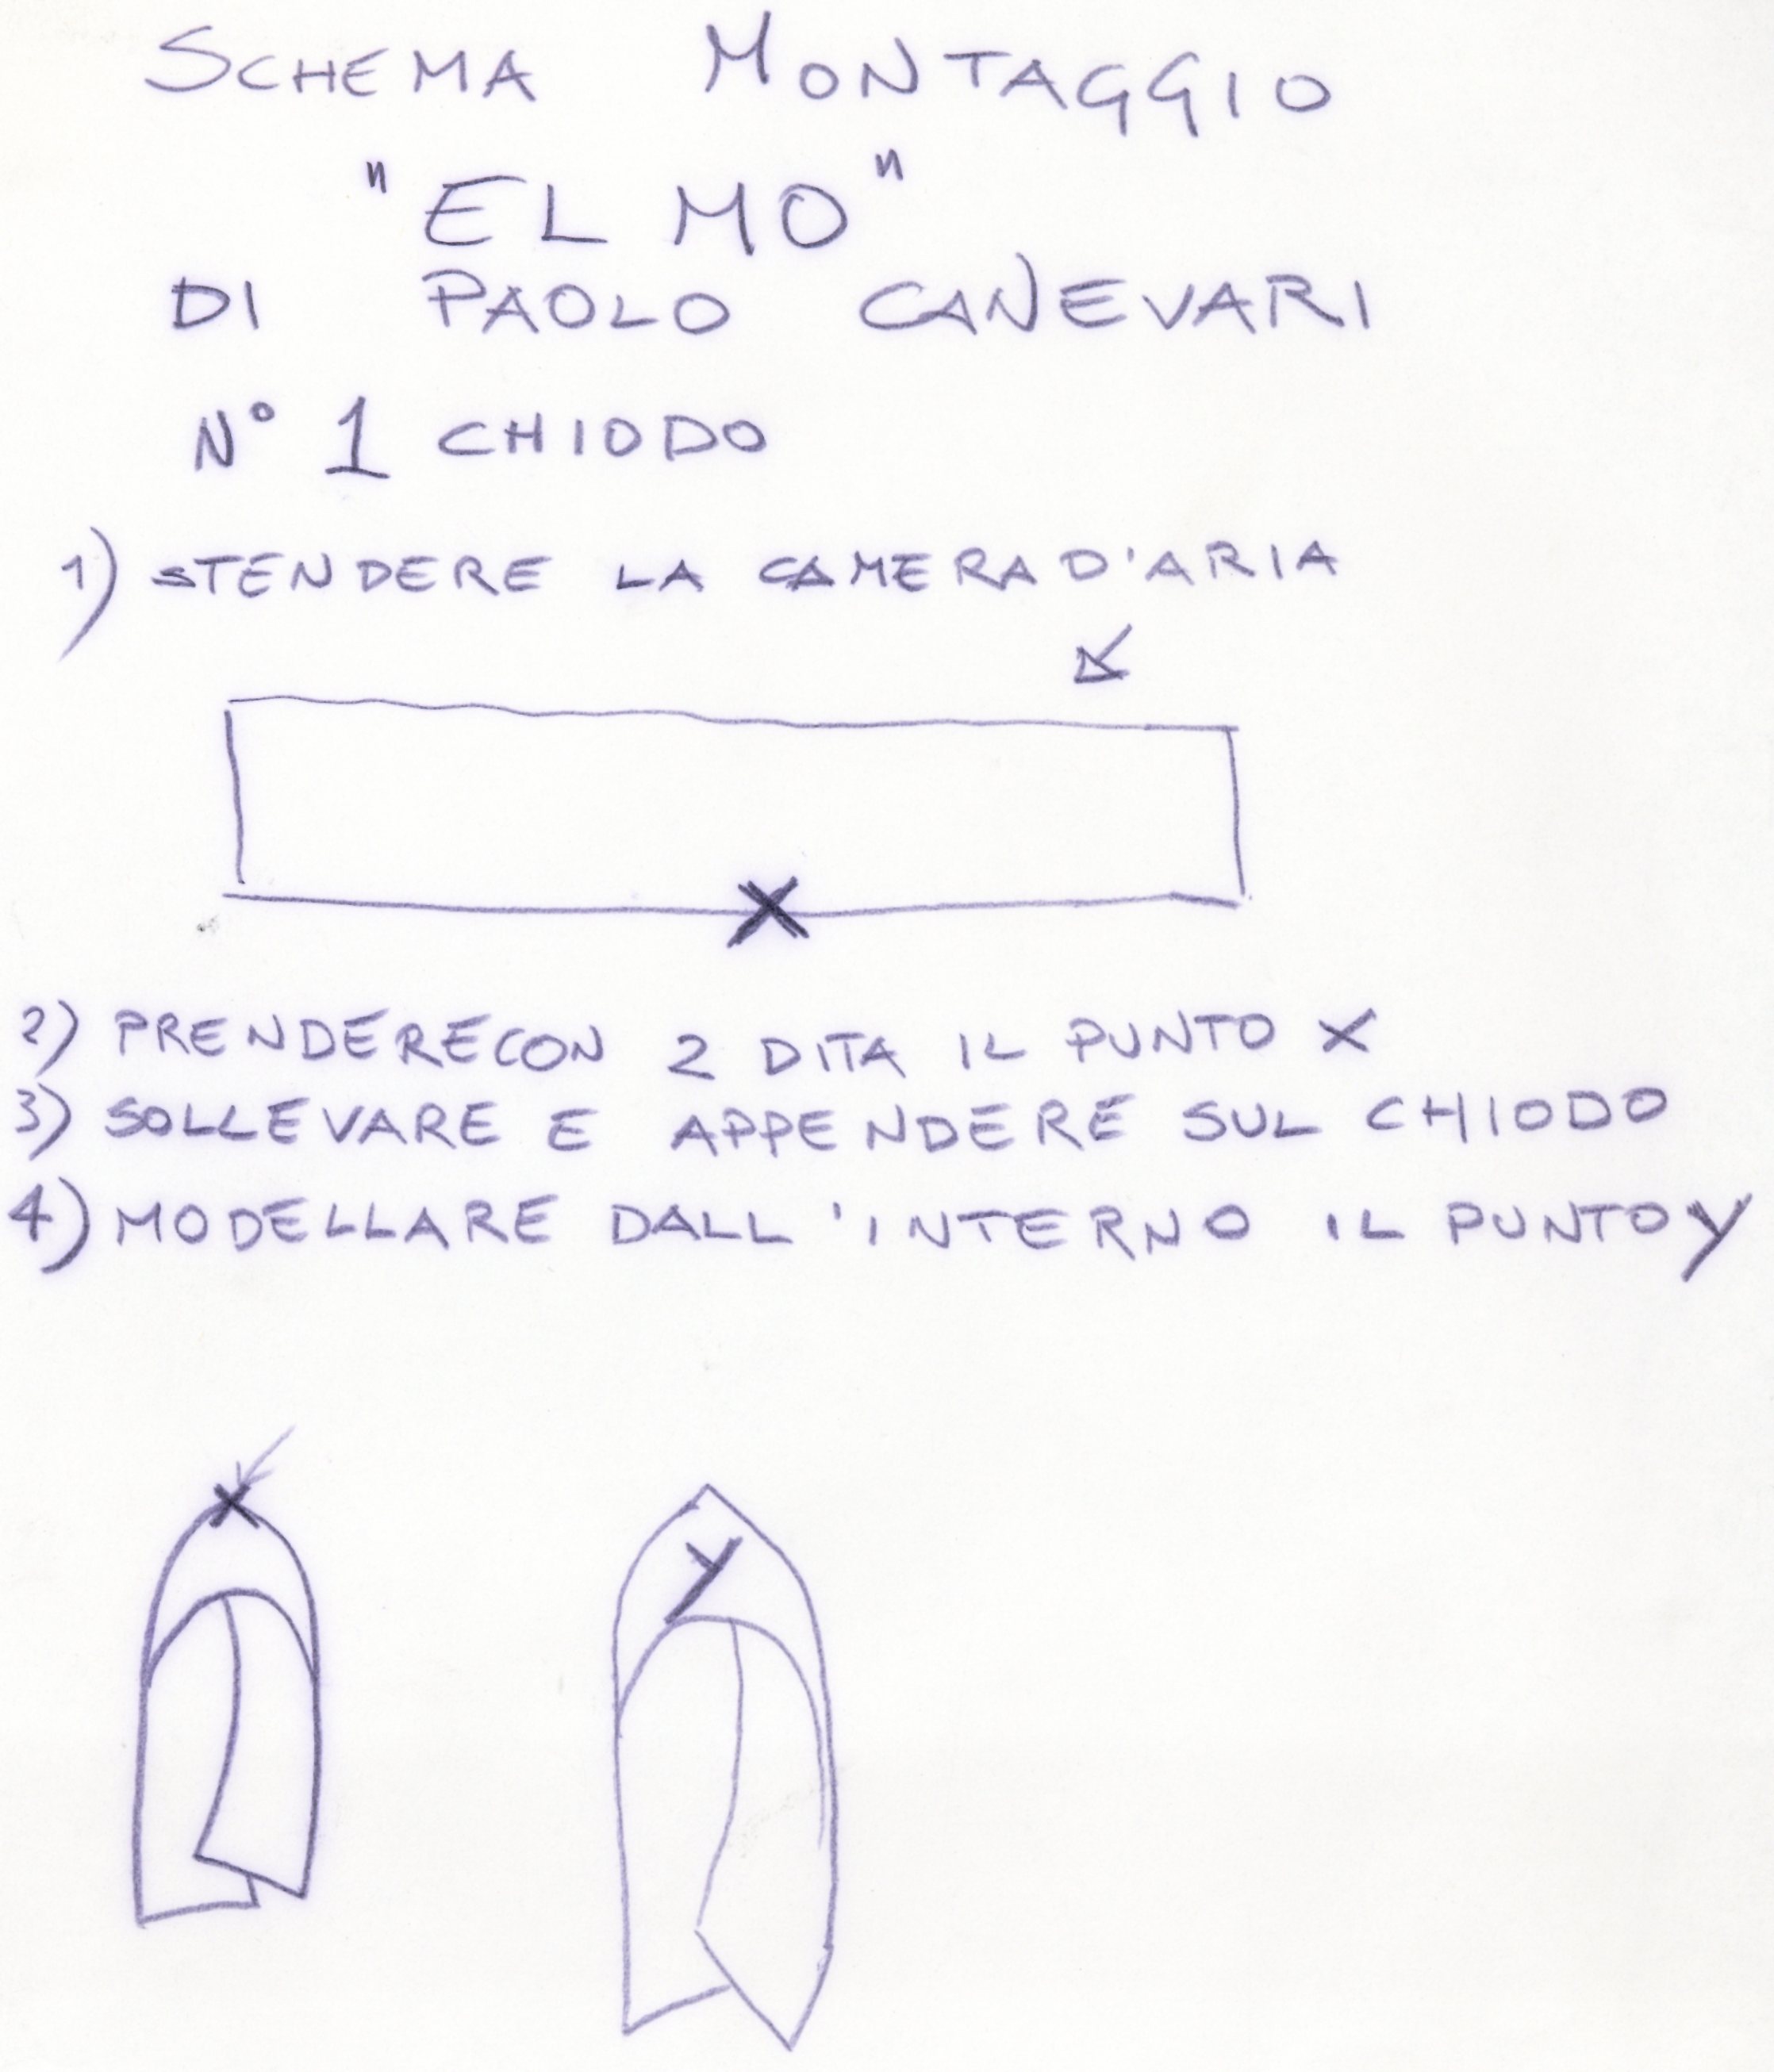 SCHEMA MONTAGGIO
"ELMO"
DI PAOLO CANEVARI
N° 1 CHIODO
1) STENDERE LA CAMERA D'ARIA
X
2) PRENDERE CON 2 DITA IL PUNTO X
3) SOLLEVARE E APPENDERE SUL CHIODO
4) MODELLARE DALL'INTERNO IL PUNTO Y
X
Y